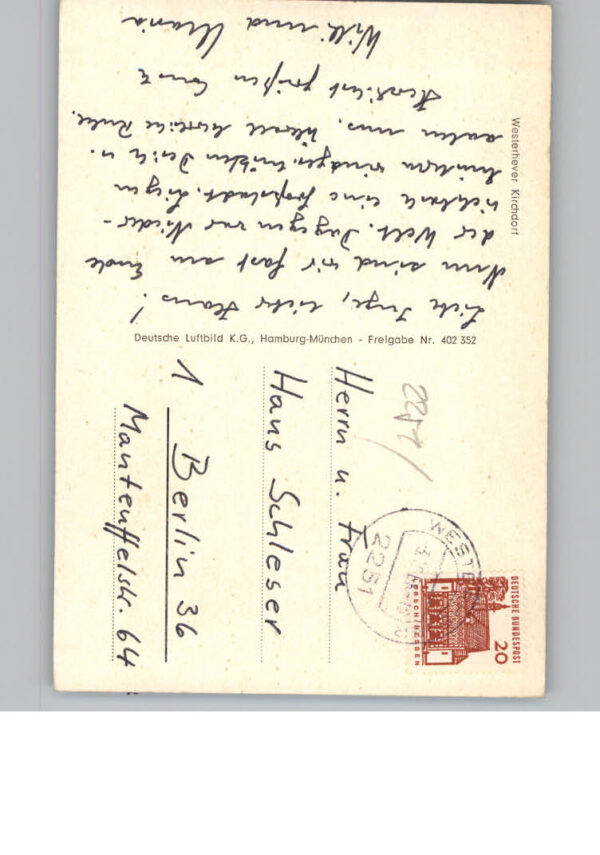 Westerhever Kirchdorf
Liebe Inge, lieber Hans!
Nun sind wir fast am Ende
der Welt. Dagegen war Nieder-
eine Großstadt. Liegen
hinterm windgeschützten Deich u.
aalen uns. Überall herrliche Ruhe.
Herzlichst grüßen Euch
Willi und Maria
Deutsche Luftbild K.G., Hamburg-München - Freigabe Nr. 402 352
DEUTSCHE BUNDESPOST
20
LORSCH/HESSEN
2251
Herrn u. Frau
Hans Schleser
1 Berlin 36
Manteuffelstr. 64